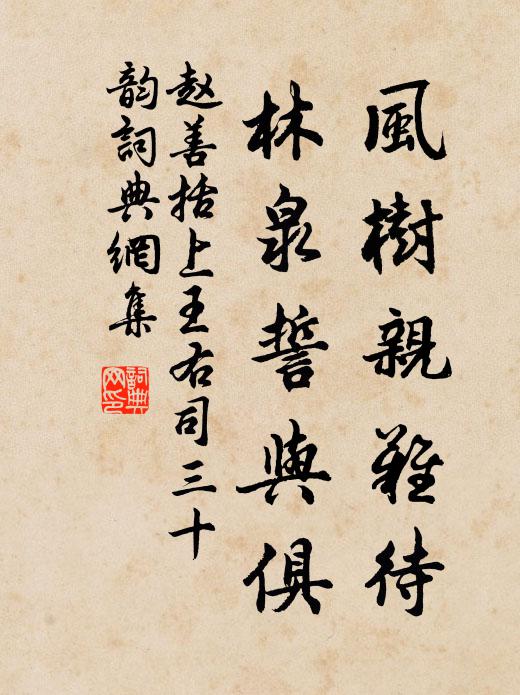 風樹親難待
林泉誓與俱
赵善括上王右司三十
韵詞典網集
詞典
网印